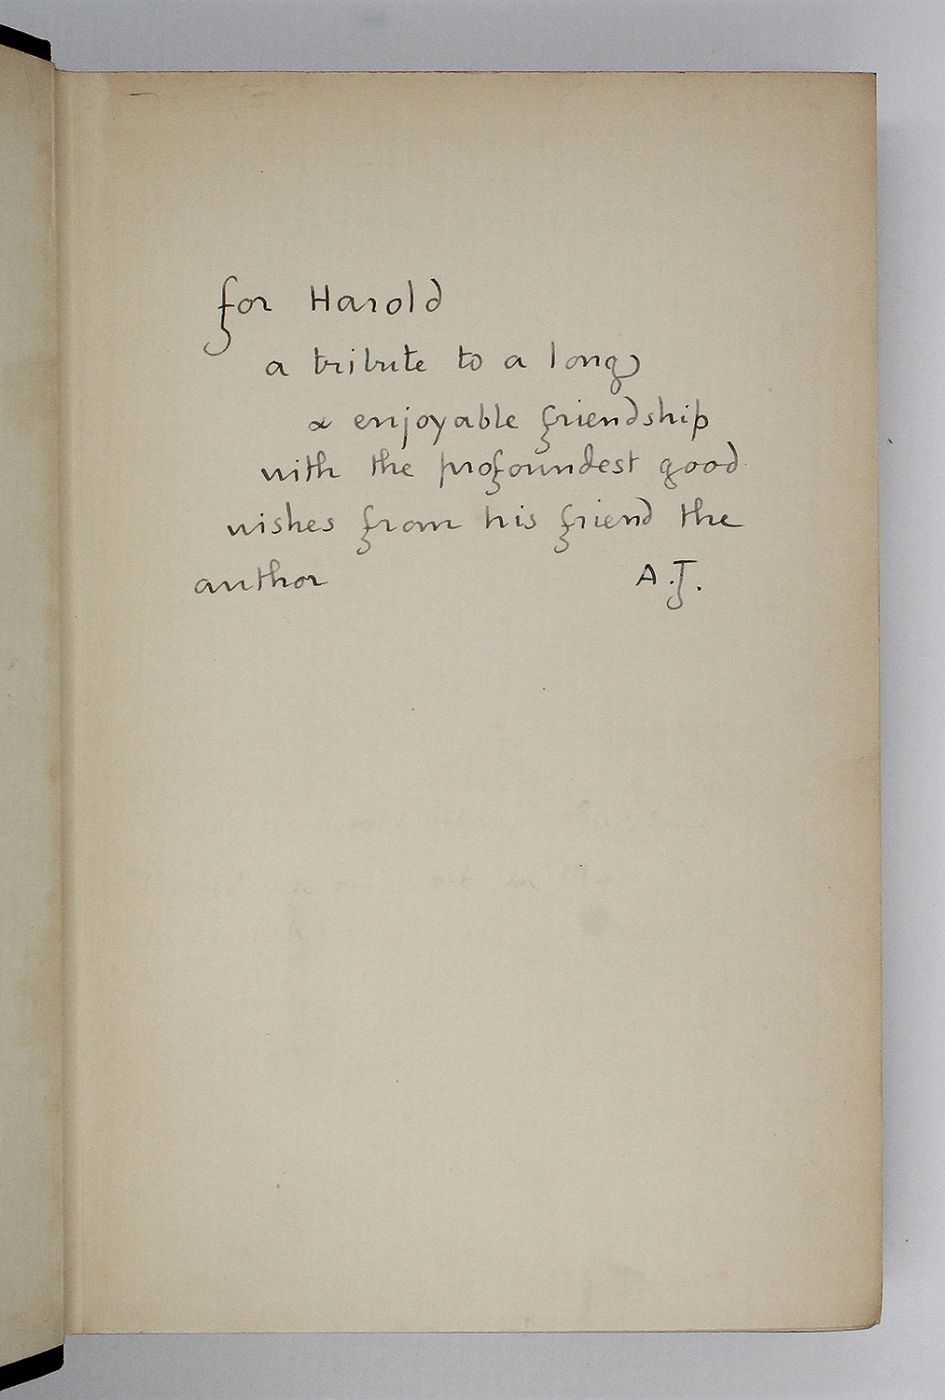 for Harold
a tribute to a long
& enjoyable friendship
with the profoundest good
wishes from his friend the
author A.J.